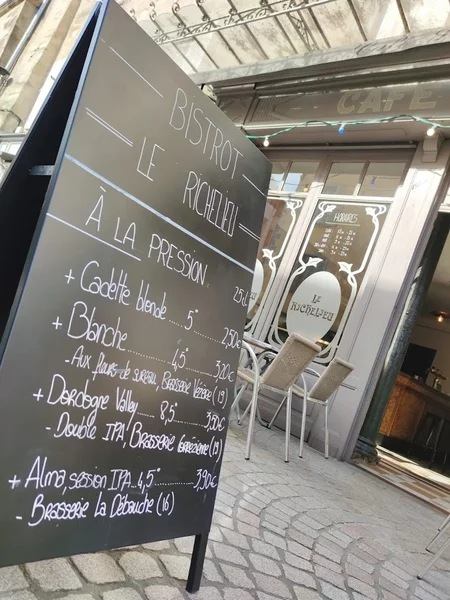 BISTROT
LE
RICHELIEU
À LA PRESSION.
25cl
+ Cadette blonde.....5°............ 2,50€
+ Blanche.......4,5°............ 3,20€
- Aux fleurs de sureau, Brasserie Vézère (19)
+ Dordogne Valley.....8,5°............ 3,50€
- Double IPA! Brasserie Corrézienne (19)
+ Alma, session IPA...4,5°............ 3,90€
- Brasserie La Débauche (16)
CAFE
HORAIRES
LE
RICHELIEU